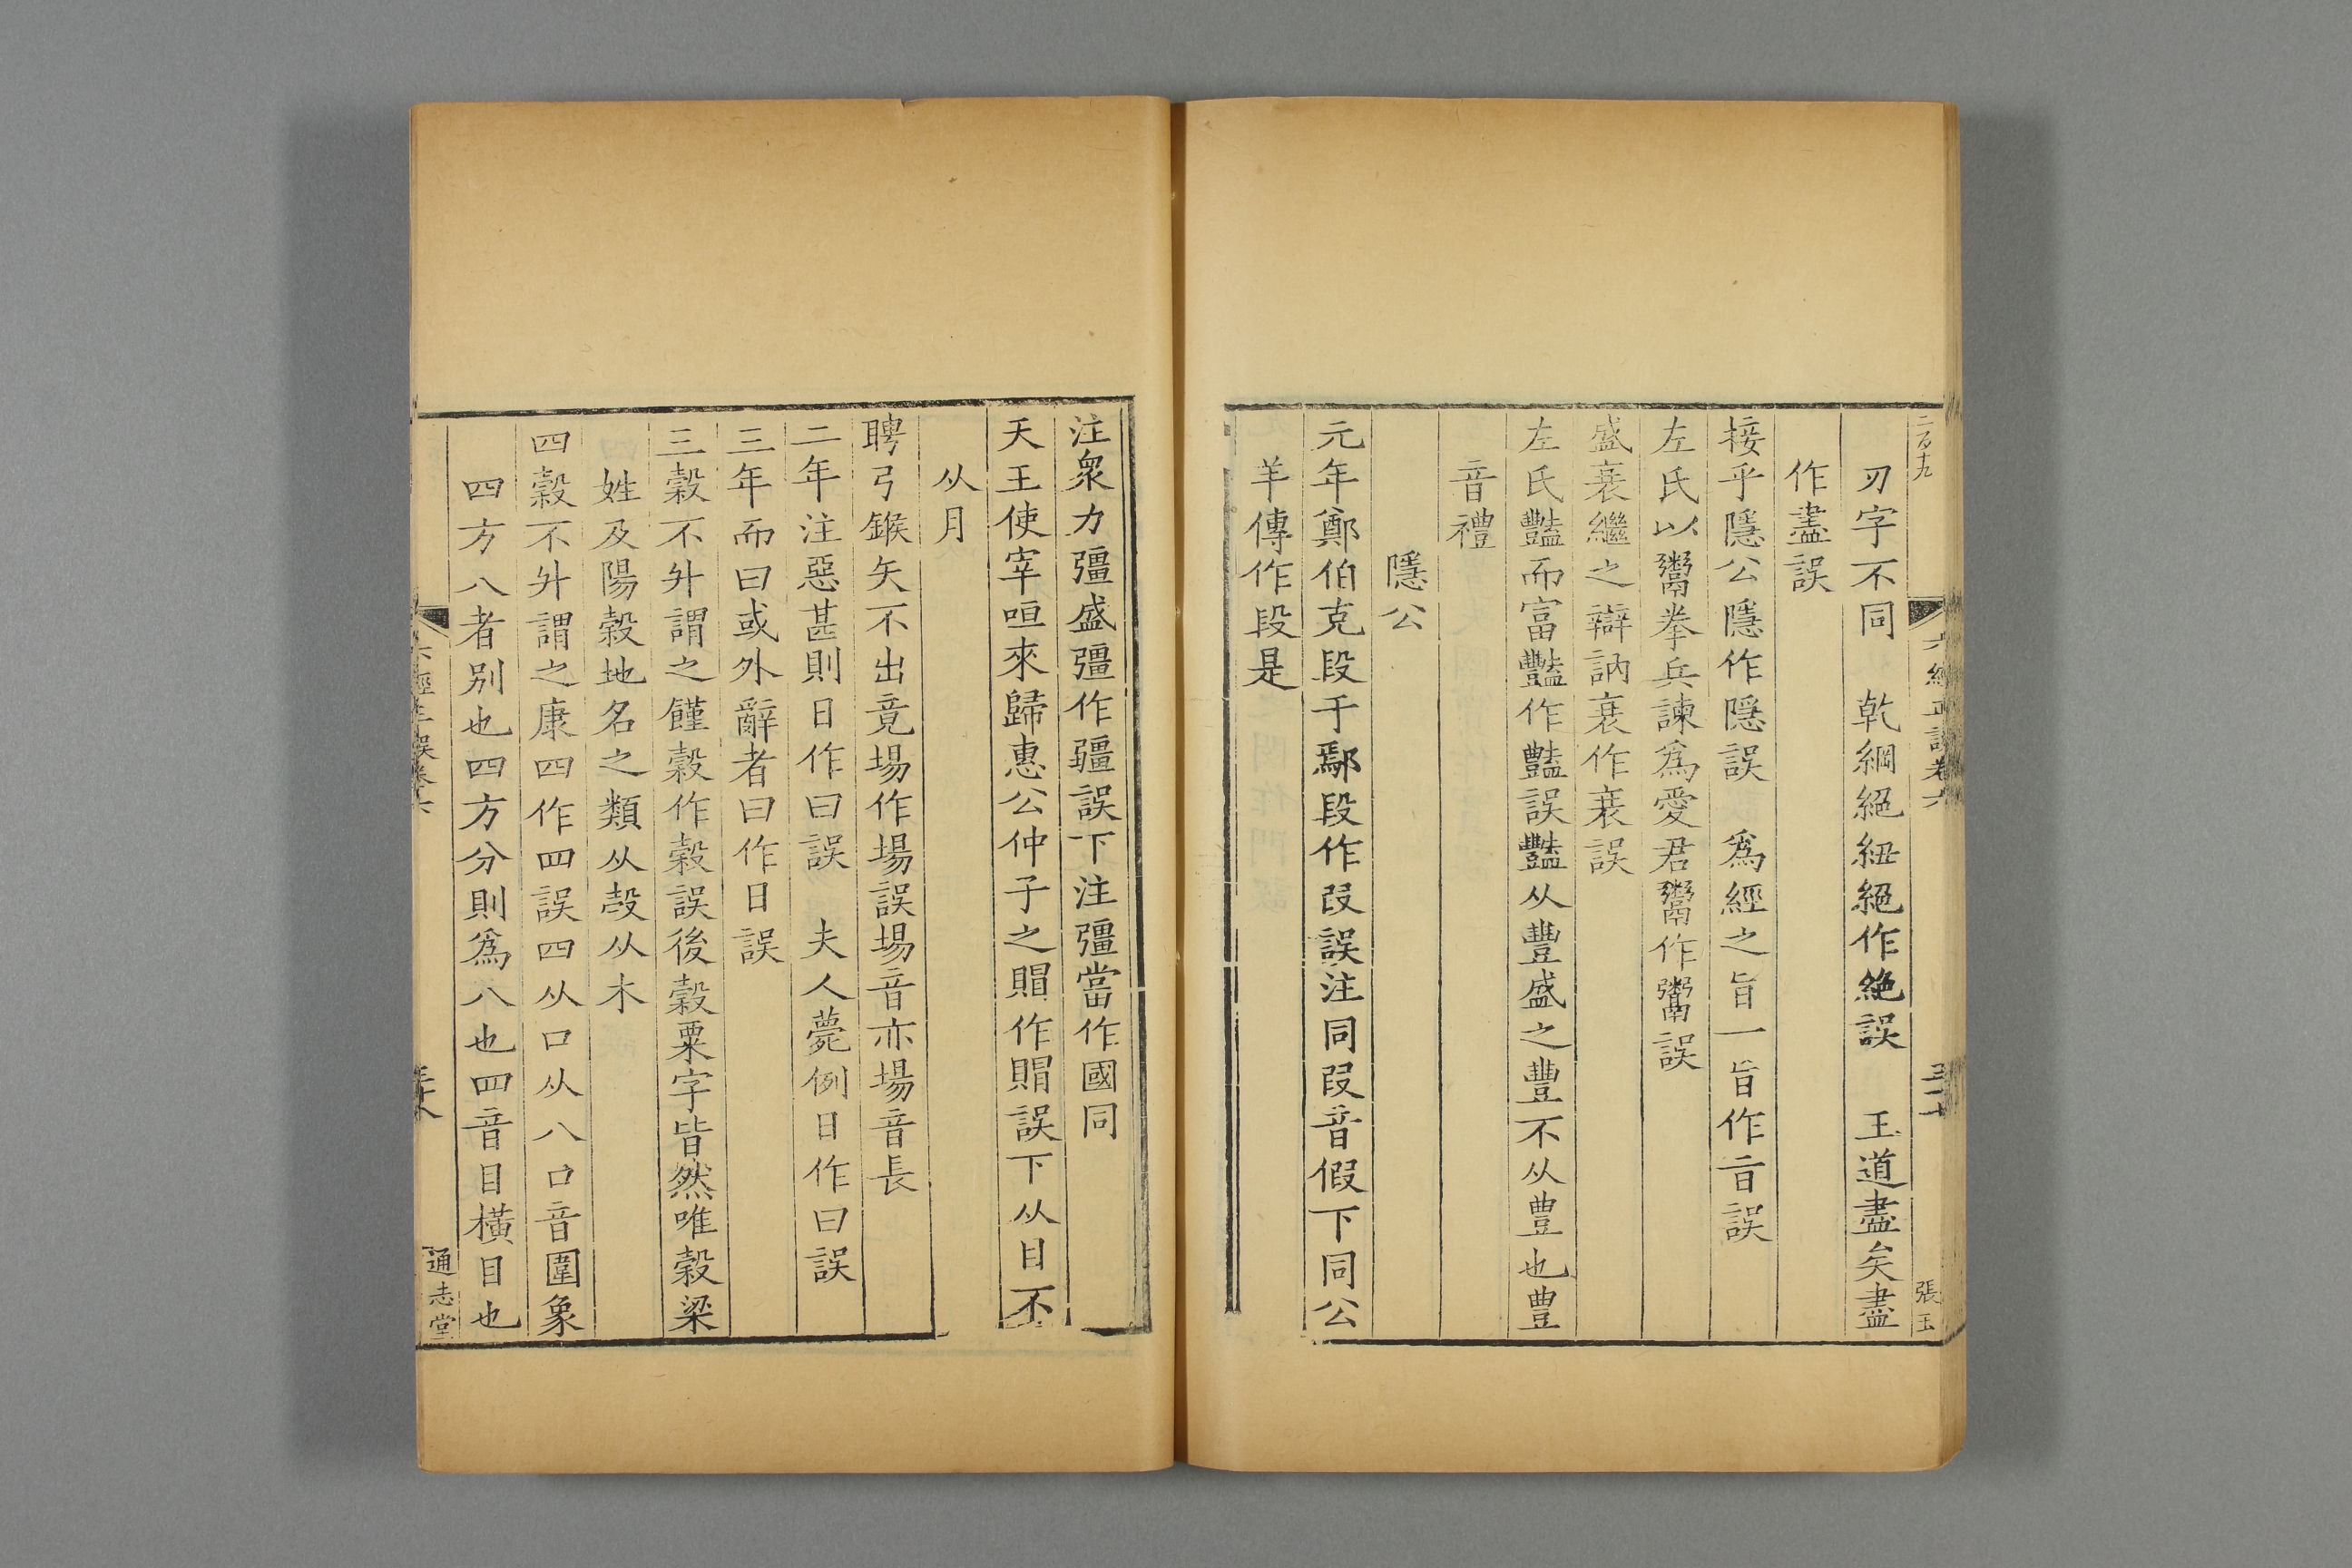 二百十九
六經正誤卷六
三十七
張玉
刃字不同 乾綱絕紐絕作絶誤 王道盡矣盡
作盡誤
接乎隱公隱作隠誤 爲經之旨一旨作㫖誤
左氏以鬻拳兵諫爲愛君鬻作鬻誤
盛衰繼之辯訥衰作衰誤
左氏豔而富豔作豔誤豔从豐盛之豐不从豊也豊
音禮
隱公
元年鄭伯克段于鄢段作叚誤注同叚音假下同公
羊傳作段是
注衆力彊盛彊作疆誤下注彊當作國同
天王使宰咺來歸惠公仲子之賵作賵誤下从日不
从月
聘弓鍭矢不出竟埸作場誤埸音亦場音長
二年注惡甚則日作曰誤 夫人薨例日作曰誤
三年而曰或外辭者曰作日誤
三穀不升謂之饉穀作榖誤後穀粟字皆然唯榖梁
姓及陽榖地名之類从㱿从木
四穀不升謂之康四作罒誤四从口从八口音圍象
四方八者别也四方分則爲八也罒音目橫目也
六經正誤卷六
三十八
通志堂